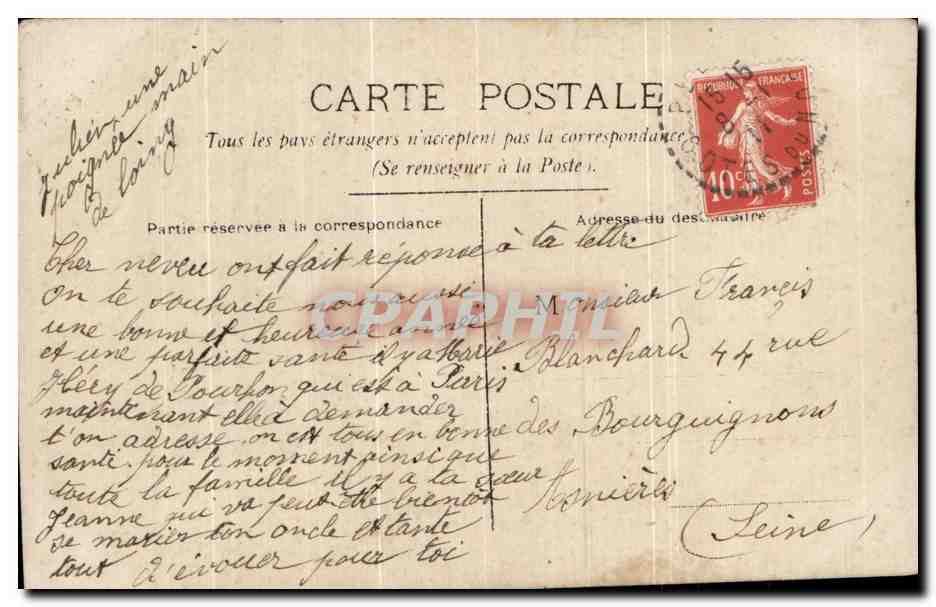 Julien, une
poignée main
de loing
CARTE POSTALE
Tous les pays étrangers n'acceptent pas la correspondance
(Se renseigner à la Poste).
REPUBLIQUE FRANÇAISE
10 c
POSTES
Partie réservée à la correspondance
Adresse du destinataire
Cher neveu ont fait réponse à ta lettre
on te souhaite nous aussi
une bonne et heureuse année
et une parfaite santé il y a Marie
Héry de Pourbon qui est à Paris
maintenant elle à demander
t'on adresse on est tous en bonne
santé pour le moment ainsi que
toute la famille il y a ta sœur
Jeanne qui va peut être bientôt
se marier ton oncle et tante
tout d'évouer pour toi
Monsieur Françis
Blanchard 44 rue
des Bourguignons
Asnières
(Seine)
CPAPHIL